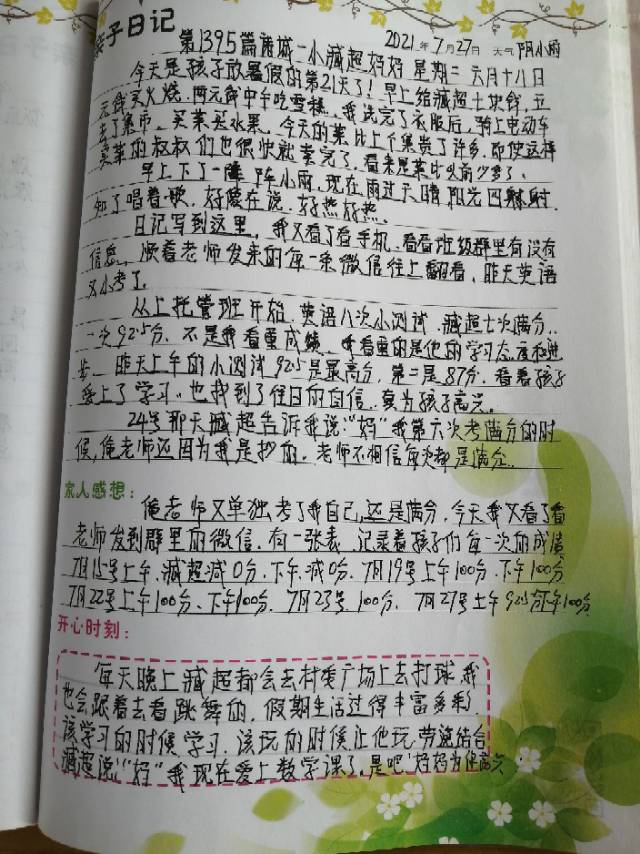 亲子日记
2021年7月27日 天气 阴小雨
第1395篇诸城一小臧超妈妈 星期二 六月十八日
今天是孩子放暑假的第21天了！早上给臧超七块钱，五
元钱买火烧，两元钱中午吃雪糕。我洗完了衣服后，骑上电动车
去了集市。买菜买水果。今天的菜比上个集贵了许多，即使这样
卖菜的叔叔们也很快就卖完了，看来是菜比以前少多了。
早上下了一阵小雨，现在雨过天晴阳光四射，
知了唱着歌，好像在说，好热好热。
日记写到这里，我又看了看手机，看看班级群里有没有
信息，顺着老师发来的每一条微信往上翻看，昨天英语
又小考了。
从上托管班开始，英语八次小测试，臧超七次满分，
一次92.5分，不是我看重成绩，我看重的是他的学习态度和进
步，昨天上午的小测试92.5是最高分，第二是87分，看着孩子
爱上了学习，也找到了往日的自信，真为孩子高兴。
24号那天臧超告诉我说："妈"我第六次考满分的时
候，俺老师还因为我是抄的。老师不相信每次都是满分。
家人感想：
俺老师又单独考了我自己，还是满分，今天我又看了看
老师发到群里的微信，有一张表，记录着孩子们每一次的成绩
7月15号上午，臧超减0分，下午，减0分，7月19号上午100分，下午100分
7月22号上午100分、下午100分，7月23号100分，7月27号上午92.5分下午100分
开心时刻：
每天晚上臧超都会去村委广场上去打球，我
也会跟着去看跳舞的，假期生活过得丰富多彩，
该学习的时候学习，该玩的时候让他玩，劳逸结合
臧超说："妈"我现在爱上数学课了，是吧！妈妈为你高兴